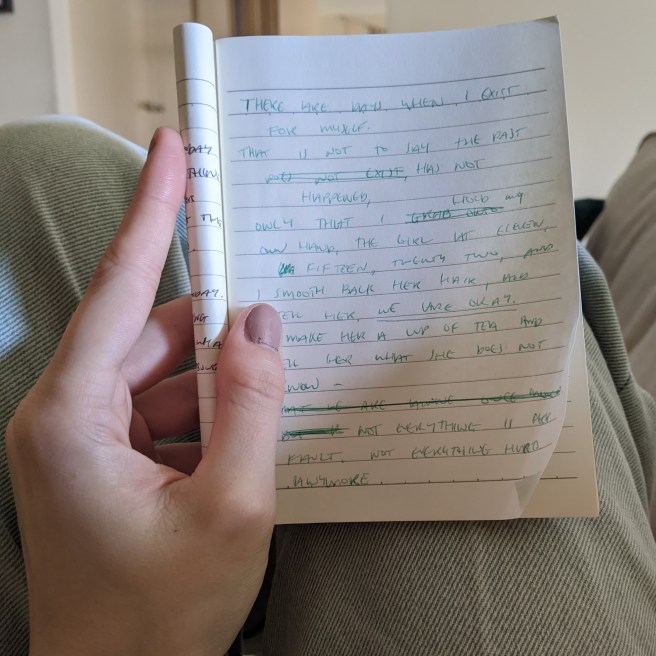 THERE ARE DAYS WHEN I EXIST
FOR MYSELF.
THAT IS NOT TO SAY THE PAST
DOES NOT EXIST, HAS NOT
HAPPENED,
ONLY THAT I HOLD MY
OWN HAND, THE GIRL AT ELEVEN,
FIFTEEN, TWENTY TWO, AND
I SMOOTH BACK HER HAIR, AND
TELL HER, WE ARE OKAY.
MAKE HER A CUP OF TEA AND
TELL HER WHAT SHE DOES NOT
KNOW –
NOT EVERYTHING IS HER
FAULT. NOT EVERYTHING HURTS
ANYMORE